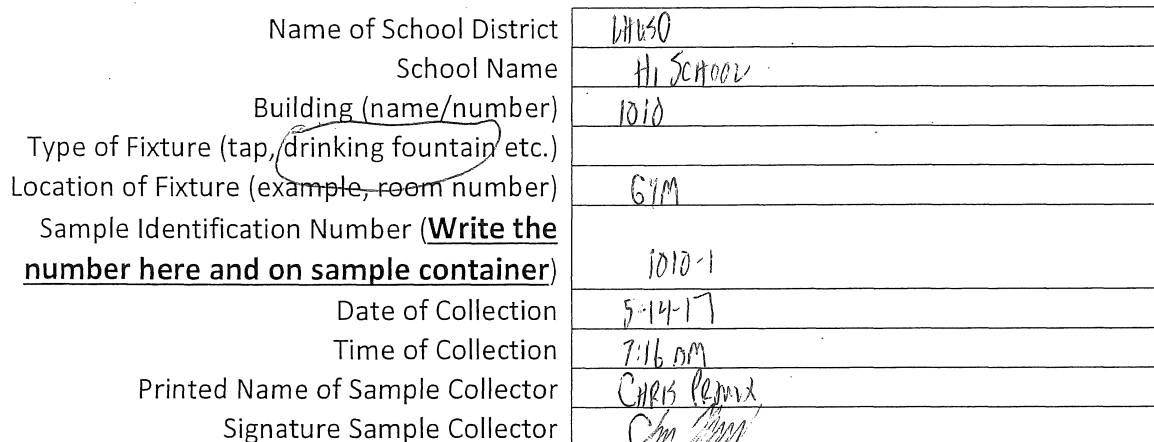 Name of School District LHUSD
School Name Hi SCHOOL
Building (name/number) 1010
Type of Fixture (tap, drinking fountain etc.)
Location of Fixture (example, room number) GYM
Sample Identification Number (Write the
number here and on sample container) 1010-1
Date of Collection 5-14-17
Time of Collection 7:16
Printed Name of Sample Collector CHRIS
Signature Sample Collector